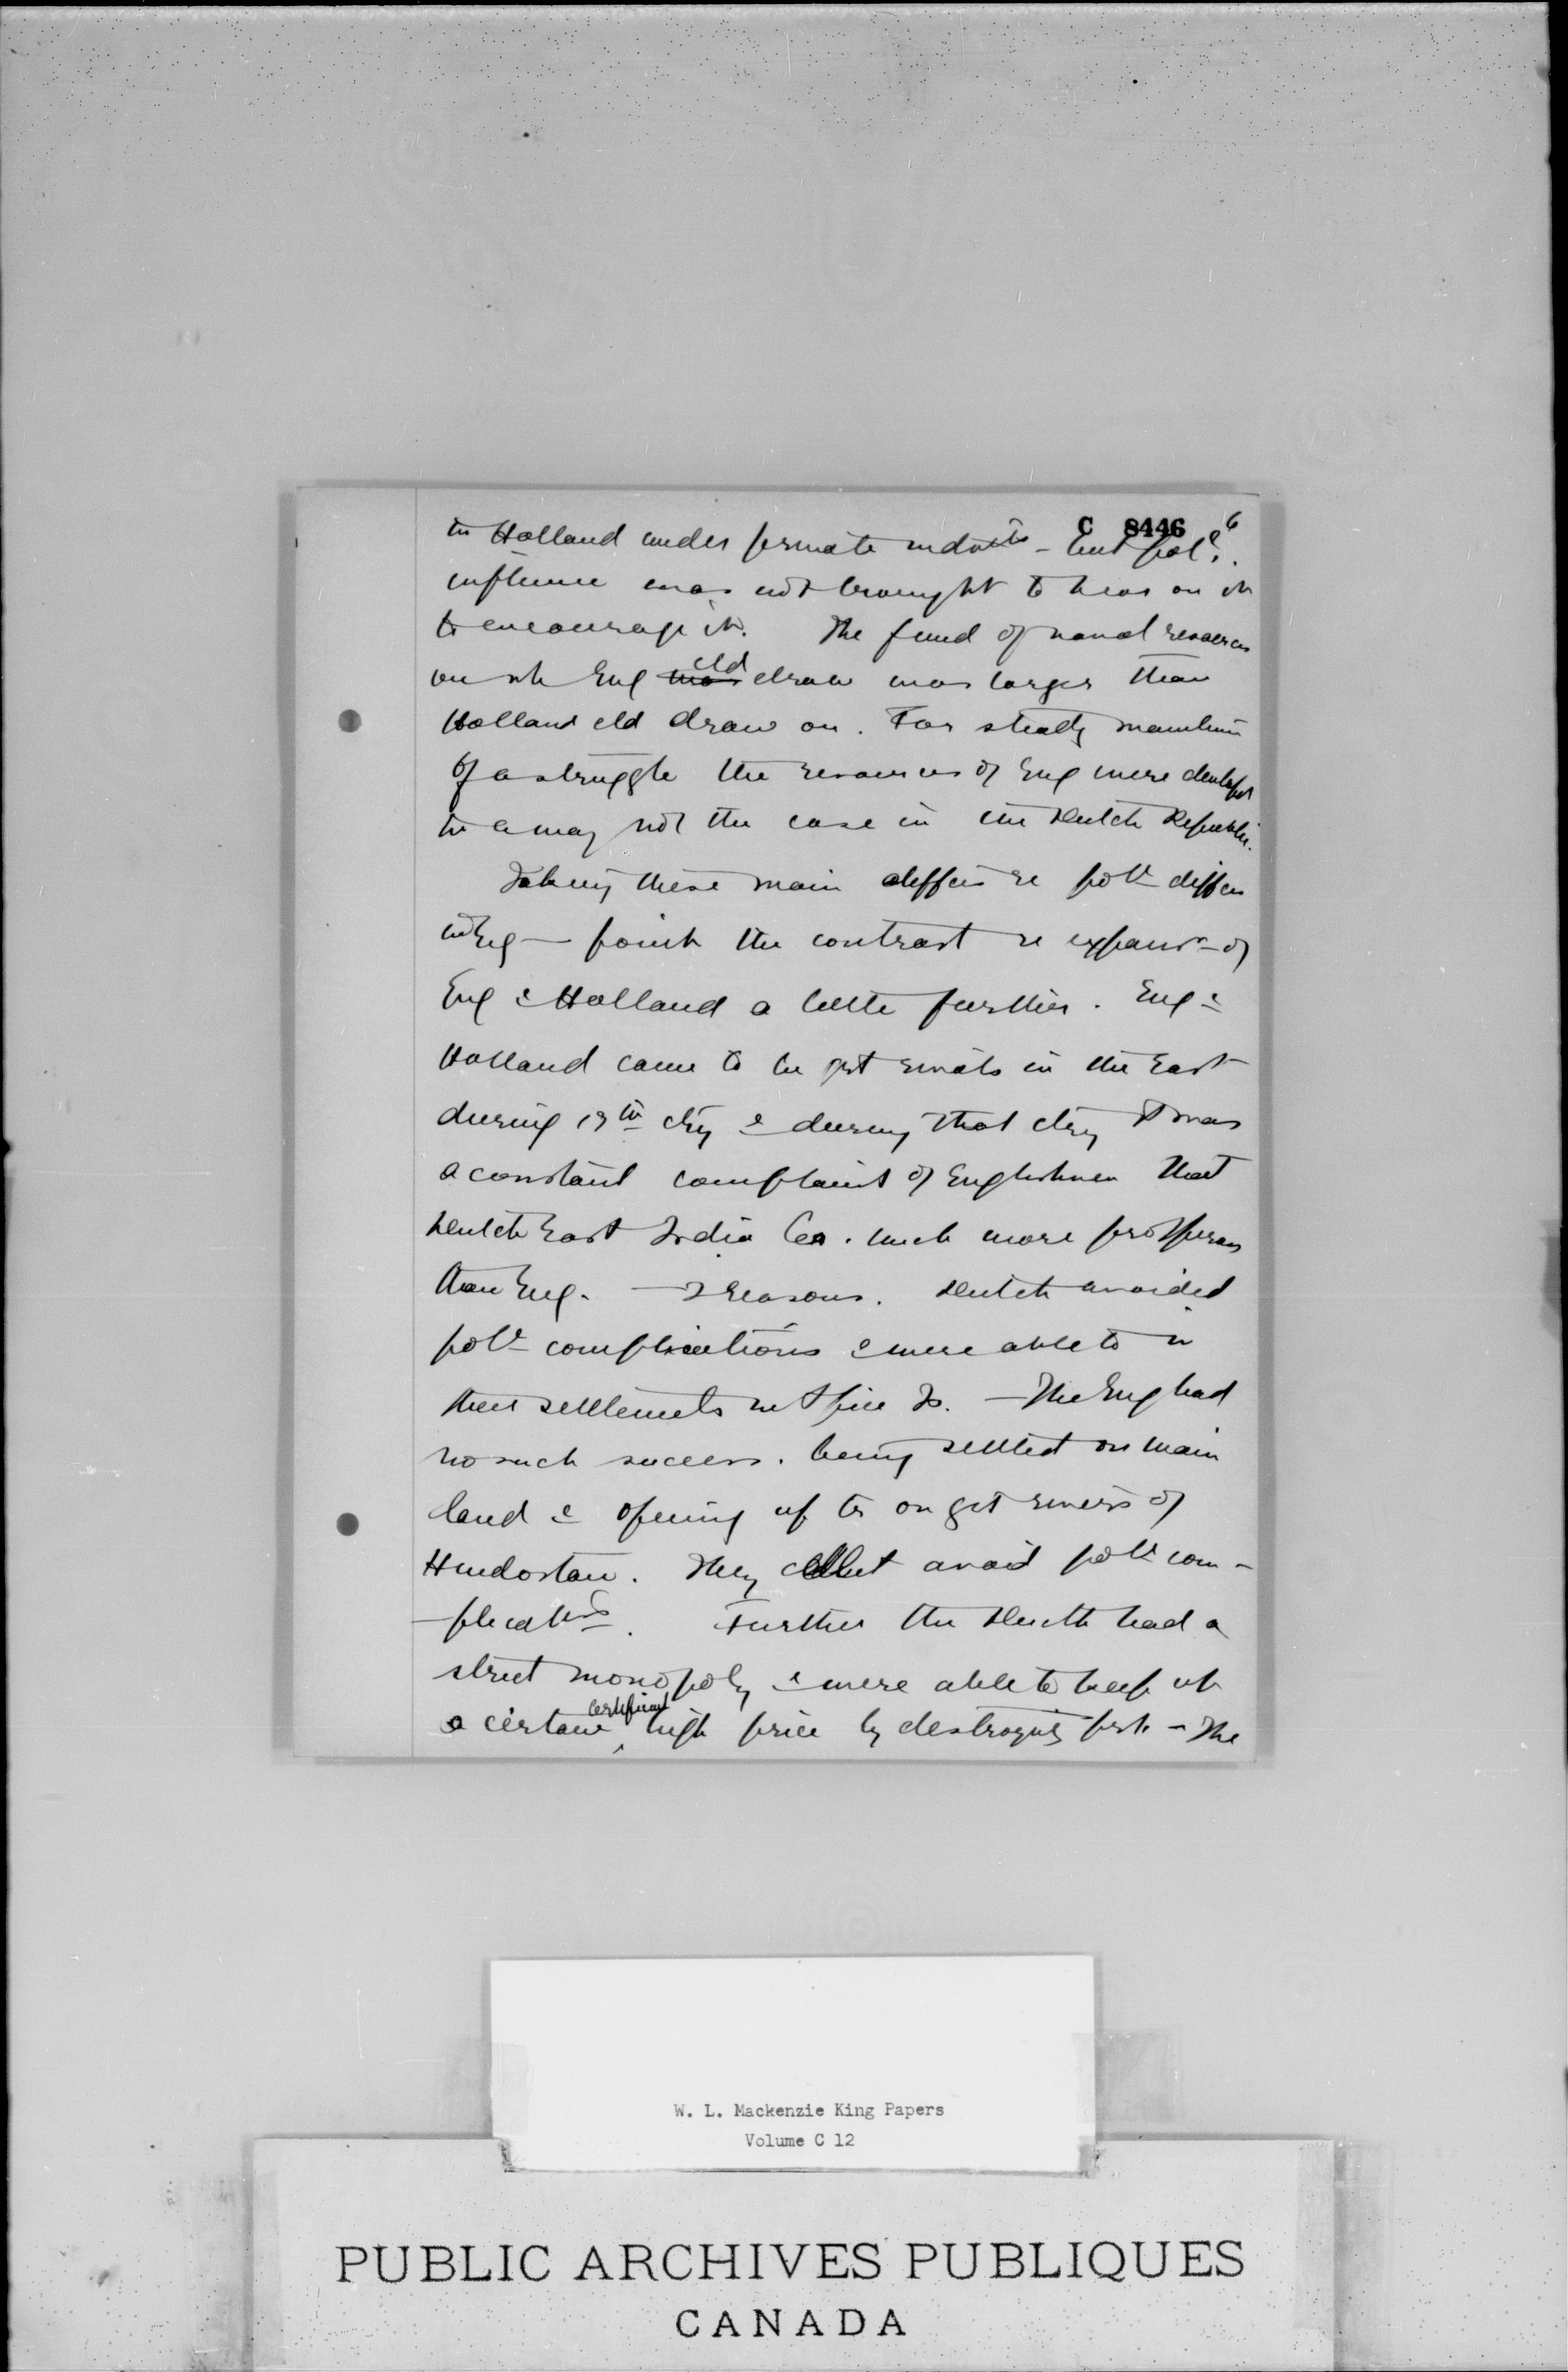 C 8446 6
in Holland under private indvls - but pol.
influence was not brought to bear on it
to encourage it. The fund of naval resources
on wh Eng was cld draw was larger than
Holland cld draw on. For steady
of a struggle the resources of Eng were developed
in a way not the case in the Dutch Republic.
Taking these main differs re poll differs
Eng - point the contrast re expansn of
Eng & Holland a little further. Eng &
Holland came to be grt rivals in the East
during 17th cty & during that cty it was
a constant complaint of Englishmen that
Dutch East India Co. much more prosperous
than Eng. - 2 reasons. Dutch avoided
poll complications & were able to in
their settlements in Spice Is. - The Eng had
no such success. being settled on main
land & opening up tr on grt rivers of
Hindostan. They cldnt avoid poll com-
plicatns. Further the Dutch had a
strict monopoly & were able to keep up
a certain high price by destroying - The
W. L. Mackenzie King Papers
Volume C 12
PUBLIC ARCHIVES PUBLIQUES
CANADA